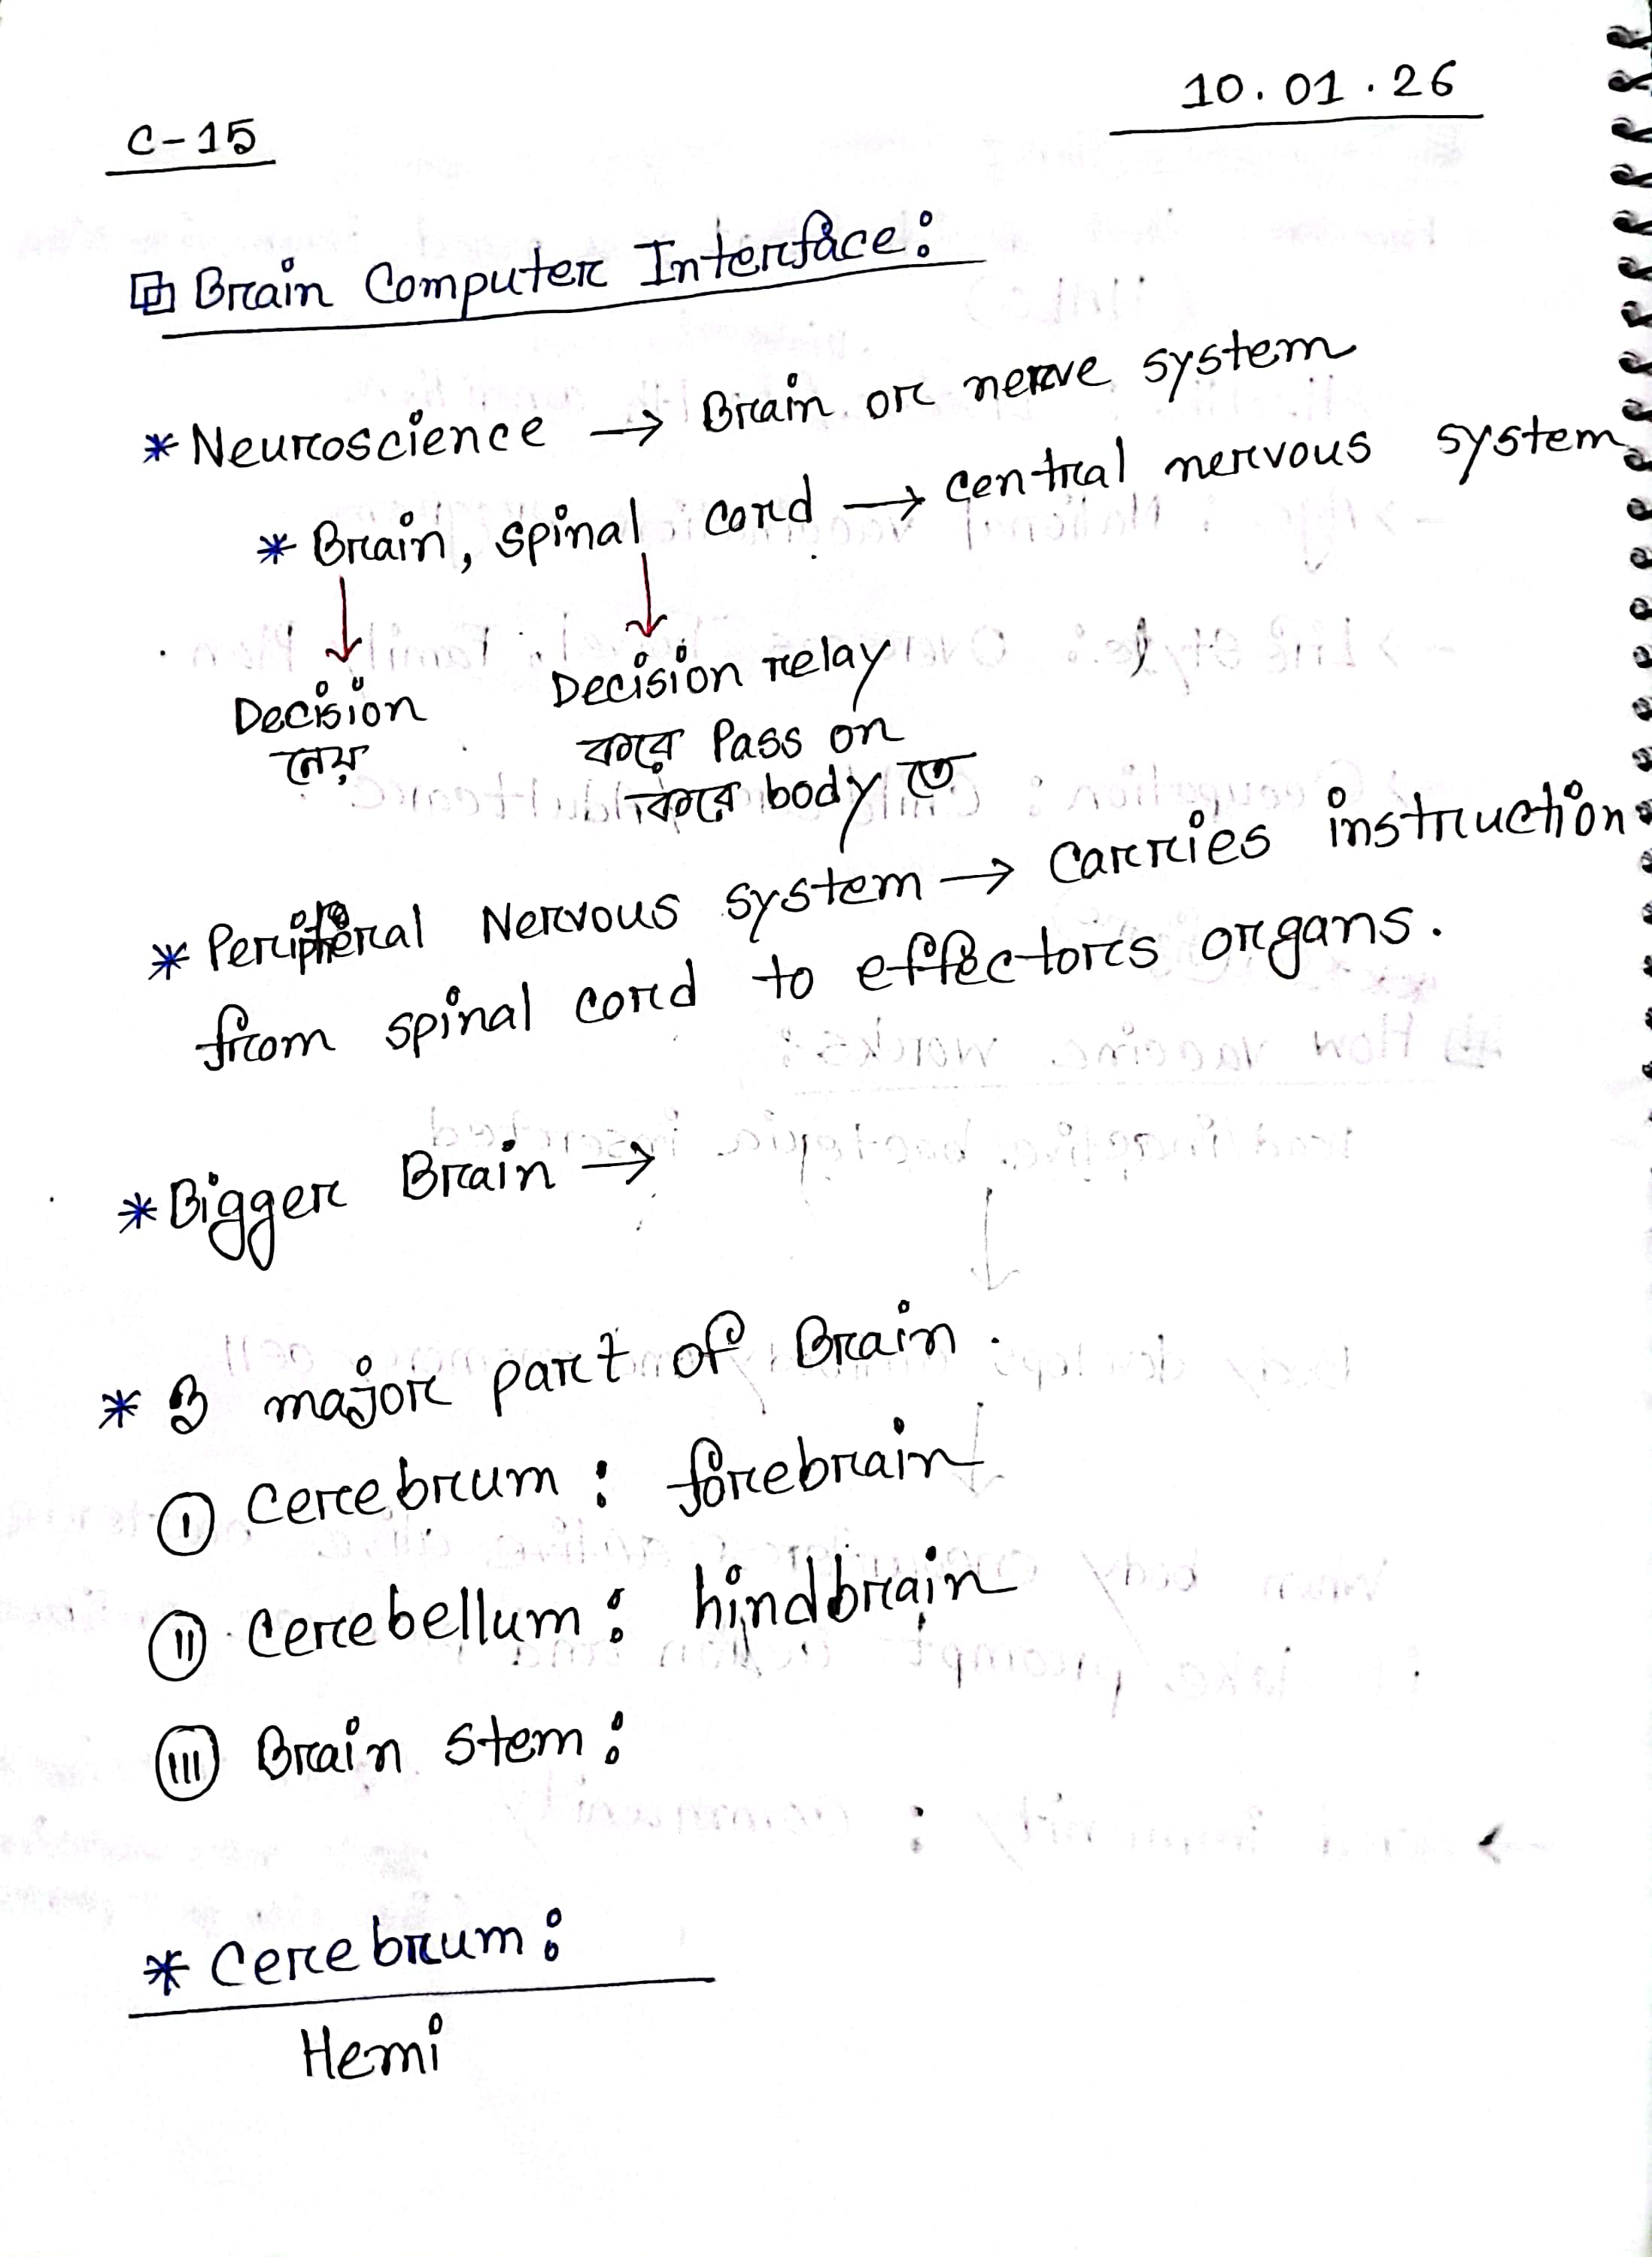 C-15
10.01.26
Brain Computer Interface:
* Neuroscience → Brain or nerve system
* Brain, spinal cord → central nervous system
Decision
নেয়
Decision relay
করে Pass on
করে body তে
* Peripheral Nervous system → carries instruction
from spinal cord to effectors organs.
* Bigger Brain →
* 3 major part of Brain.
(I) cerebrum: forebrain
(II) cerebellum: hindbrain
(III) Brain stem:
* cerebrum:
Hemi